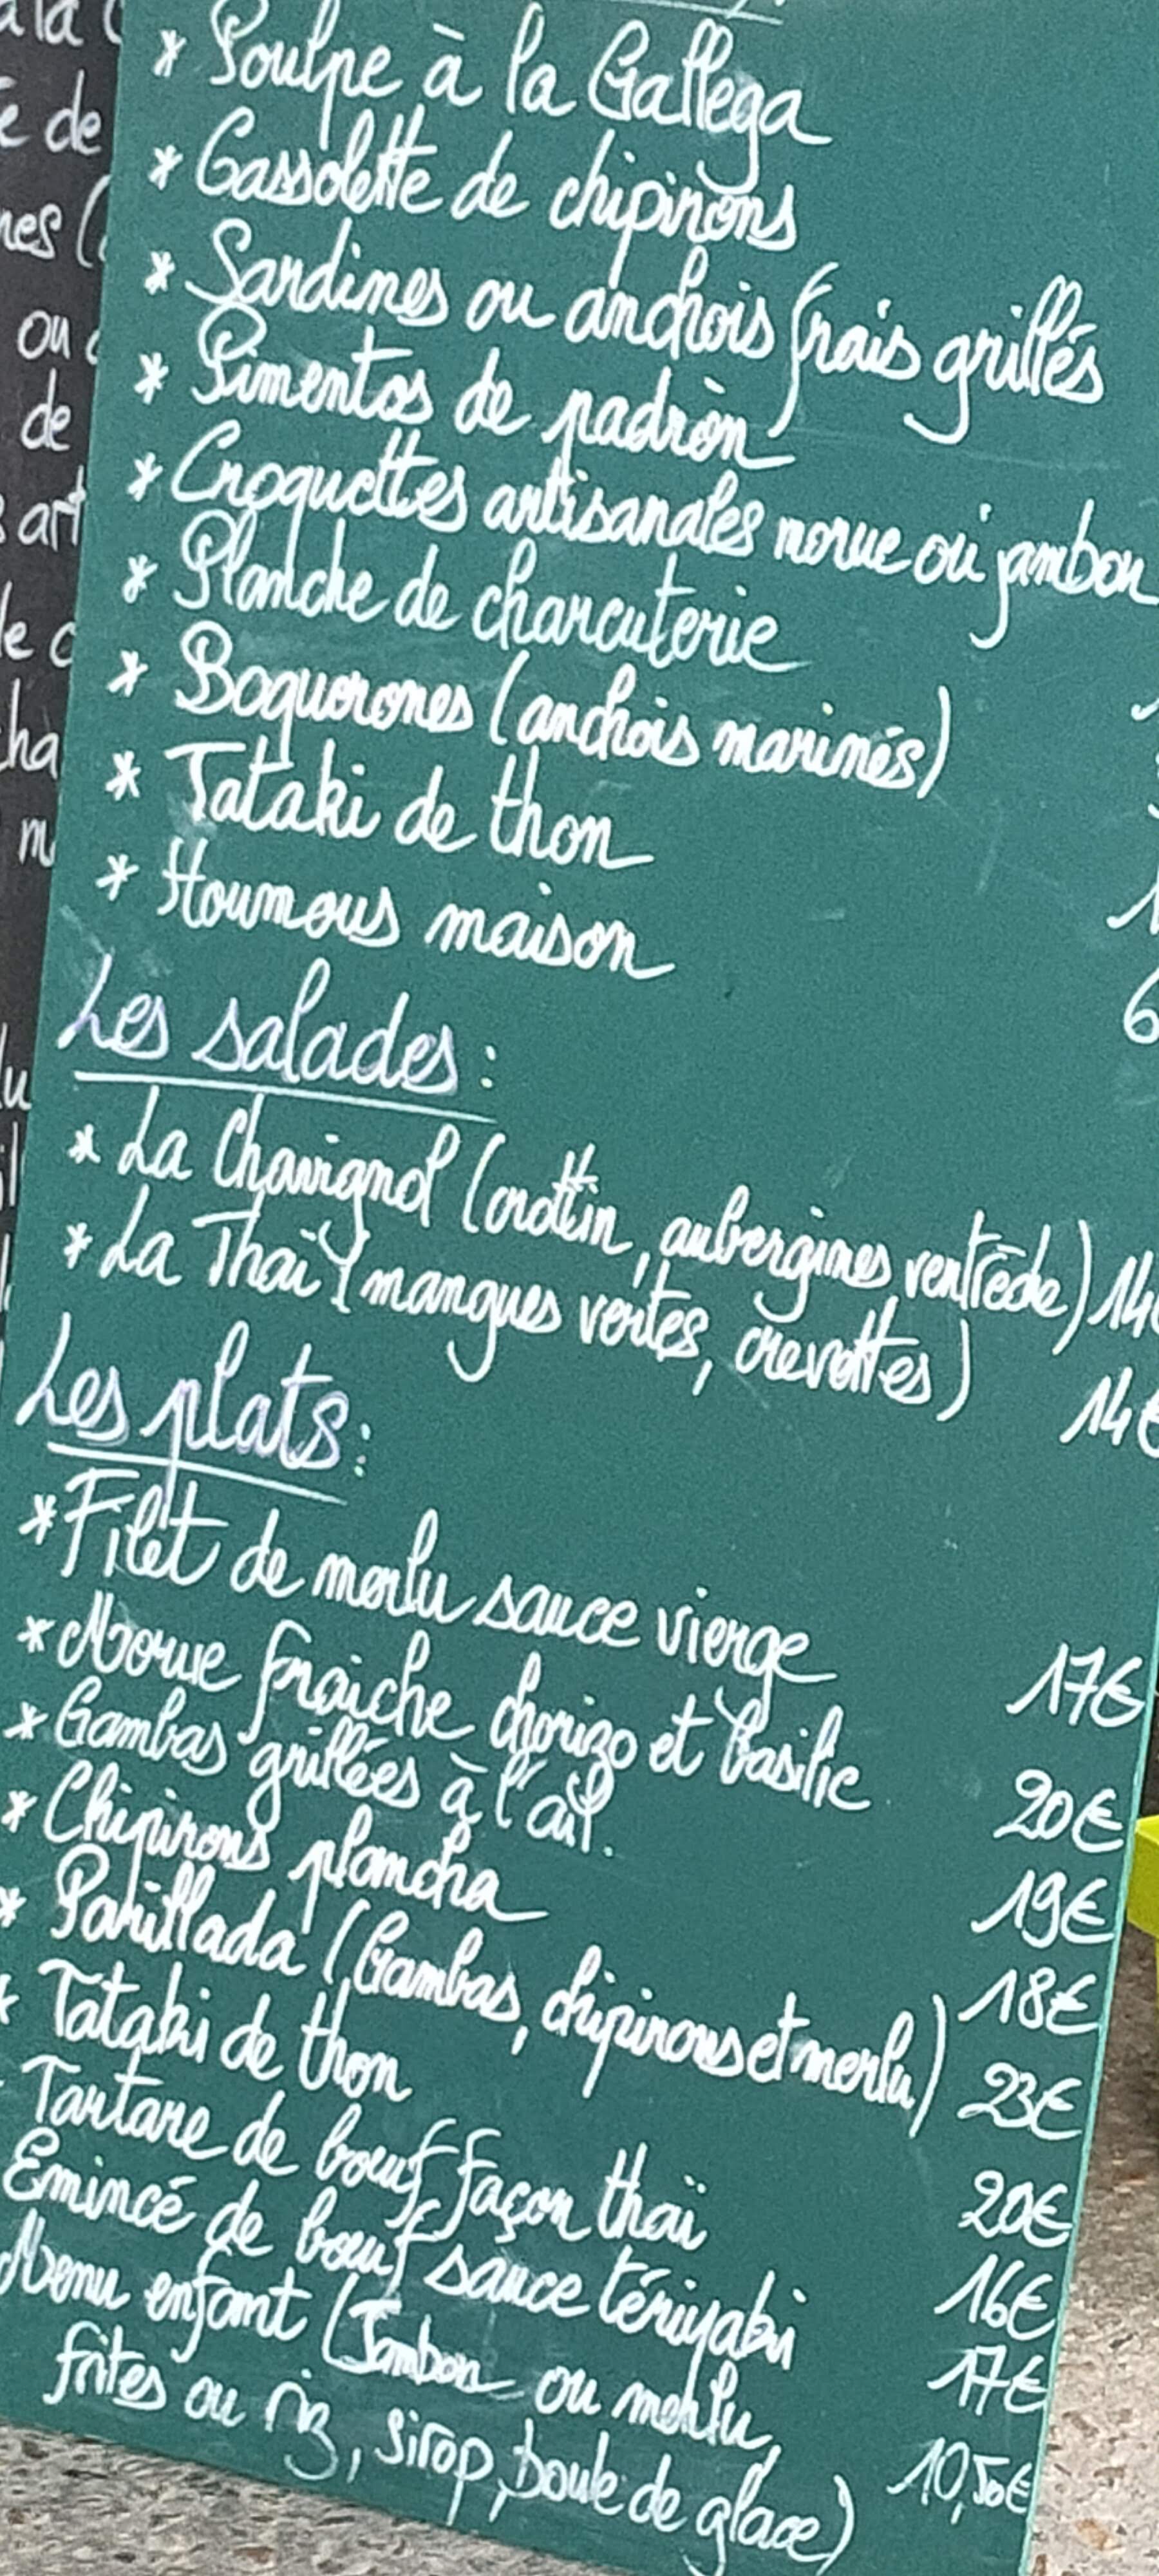 * Poulpe à la Gallega
* Cassolette de chipirons
* Sardines ou anchois frais grillés
* Pimentos de padròn
* Croquettes artisanales morue ou jambon
* Planche de charcuterie
* Boquerones (anchois marinés)
* Tataki de thon
* Houmous maison 6
Les salades:
* La Chavignol (crottin, aubergines, ventrèche) 14€
* La Thaï (mangues vertes, crevettes) 14€
Les plats:
* Filet de merlu sauce vierge 17€
* Morue fraiche chorizo et basilic 20€
* Gambas grillées à l'ail. 19€
* Chipirons plancha 18€
* Parillada (Gambas, chipirons et merlu) 23€
* Tataki de thon 20€
Tartare de bœuf façon thaï 16€
Emincé de bœuf sauce tériyaki 17€
Menu enfant (Jambon ou merlu, 10,50€
frites ou riz, sirop, boule de glace)